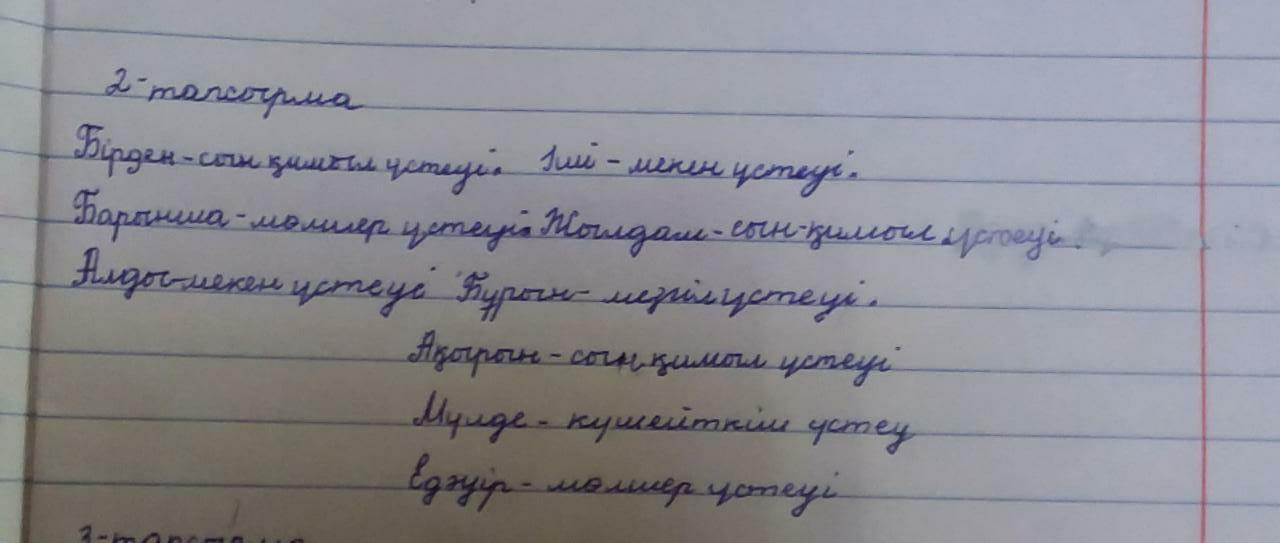 2-тапсырма
Бірден-сын қимыл үстеуі. Іші - мекен үстеуі.
Барынша-мөлшер үстеуі. Жылдам-сын-қимыл үстеуі.
Алды-мекен үстеуі Бұрын- мезгіл үстеуі.
Ақырын - сын қимыл үстеуі
Мүлде - күшейткіш үстеу
Едәуір - мөлшер үстеуі
3-тапсырма